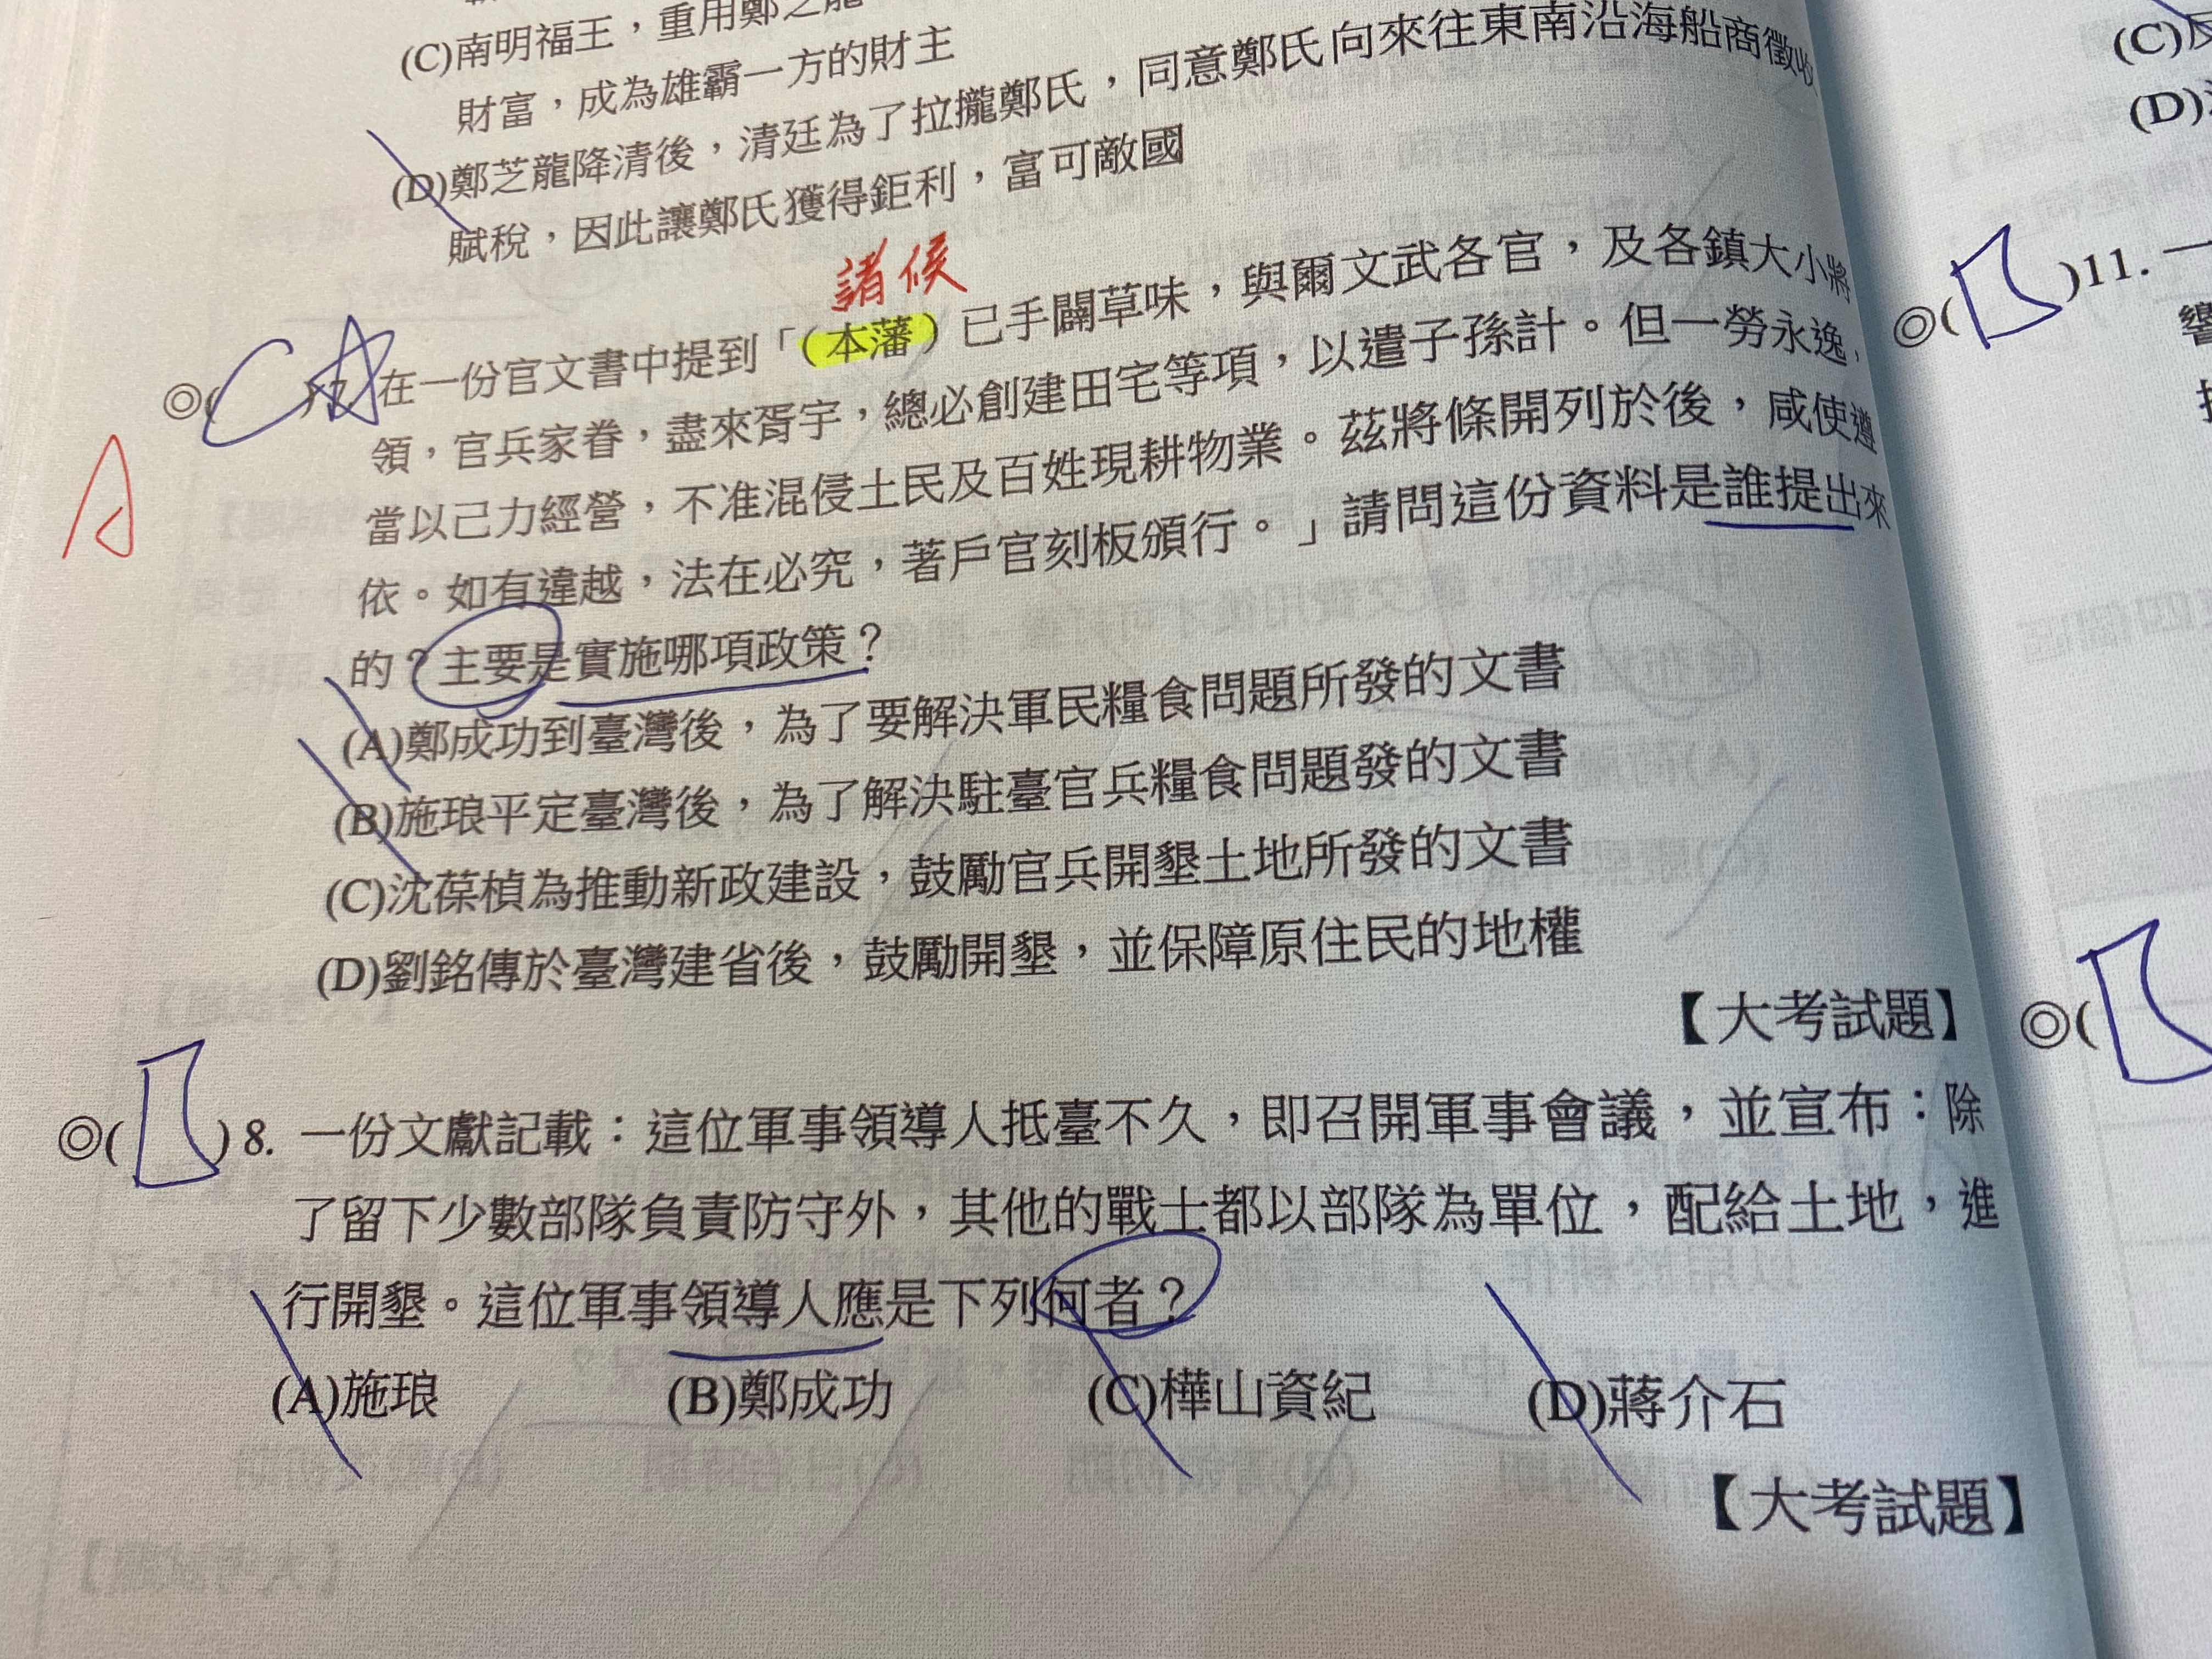 (C)南明福王，重用鄭之龍
財富，成為雄霸一方的財主
(D)鄭芝龍降清後，清廷為了拉攏鄭氏，同意鄭氏向來往東南沿海船商徵收
賦稅，因此讓鄭氏獲得鉅利，富可敵國
諸候
◎(C)7. 在一份官文書中提到「（本藩）已手闢草味，與爾文武各官，及各鎮大小將
領，官兵家眷，盡來胥宇，總必創建田宅等項，以遣子孫計。但一勞永逸，
當以己力經營，不准混侵土民及百姓現耕物業。茲將條開列於後，咸使遵
依。如有違越，法在必究，著戶官刻板頒行。」請問這份資料是誰提出來
的？主要是實施哪項政策？
A
(A)鄭成功到臺灣後，為了要解決軍民糧食問題所發的文書
(B)施琅平定臺灣後，為了解決駐臺官兵糧食問題發的文書
(C)沈葆楨為推動新政建設，鼓勵官兵開墾土地所發的文書
(D)劉銘傳於臺灣建省後，鼓勵開墾，並保障原住民的地權
【大考試題】
◎( )8. 一份文獻記載：這位軍事領導人抵臺不久，即召開軍事會議，並宣布：除
了留下少數部隊負責防守外，其他的戰士都以部隊為單位，配給土地，進
行開墾。這位軍事領導人應是下列何者？
(A)施琅 (B)鄭成功 (C)樺山資紀 (D)蔣介石
【大考試題】
(C)
(D)
◎( )11. 一
◎(